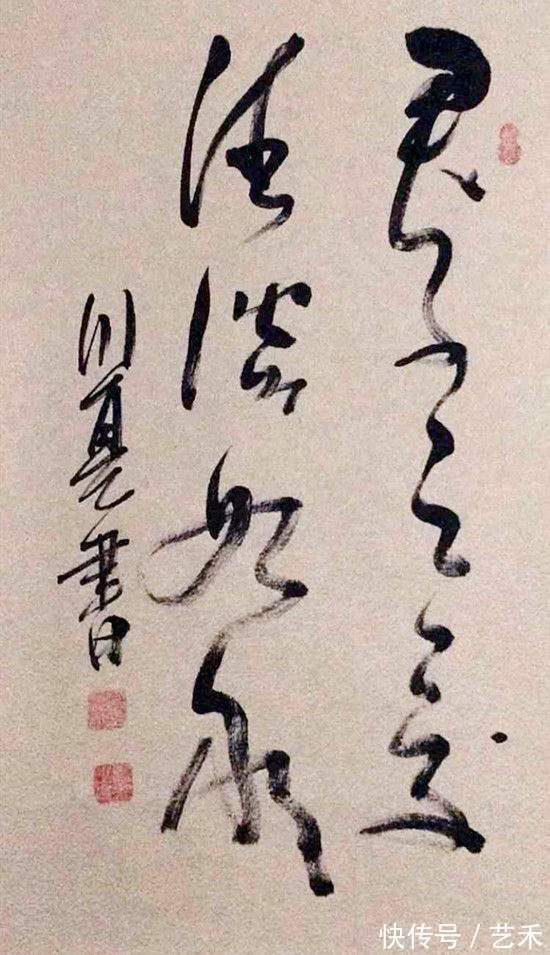 君子之交
清淡如水
書
快传号 / 艺禾